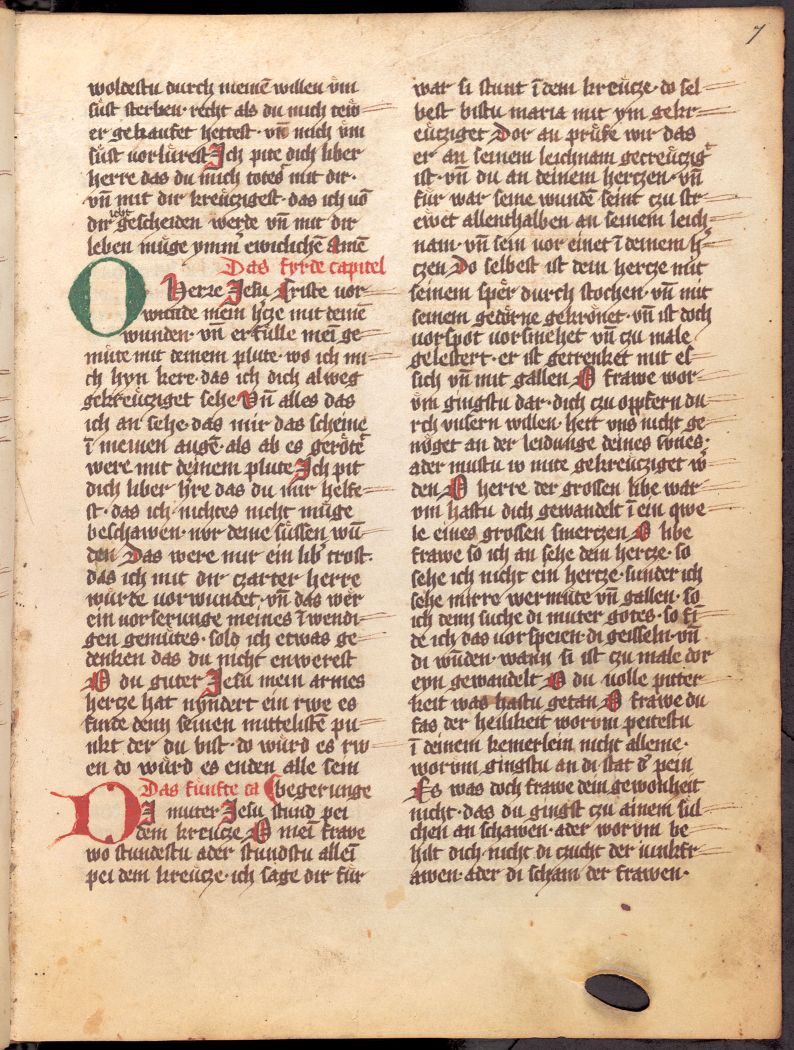 7
woldestu durch meinē willen vm
süst sterben· recht als du mich tew
er gekaufet hettest· vn̄ mich vm
süst vorlürest Ich pite dich liber
herre das du mich totest mit dir·
vn̄ mit dir kreüczigest· das ich vō
dir icht gescheiden werde vn̄ mit dir
leben müge ymm̄ ewiclichē Amē
Das fyrde capitel
O Herre Jesu Criste vor
wunde mein h'cze mit deinē
wunden· vn̄ erfülle meī ge
müte mit deinem plute· wo ich mi
ch hyn kere· das ich dich alweg
gekreücziget sehe Vn̄ alles das
ich an sehe· das mir das scheine
ī meinen augē· als ab es gerötet
were mit deinem plute Ich pit
dich liber h're das du mir helfe
st· das ich nichtes nicht müge
beschawen· nür deine süssen wū
den Das were mir ein lib' trost·
das ich mit dir czarter herre
würde vorwundet· vn̄ das wer
ein vorserunge meines īwendi
gen gemütes· sold ich etwas ge
denken das du nicht enwerest
O du guter Jesu mein armes
hercze hat nyndert ein rwe es
finde denn seinen mittelistē pu
nkt der du bist· do würd es rw
en do würd es enden alle sein
Das fünfte ca begerunge
DI muter Jesu stund pei
dem kreücze O meī frawe
wo stundestu ader stundstu alleī
pei dem kreücze· ich sage dir für
war si stunt ī dem kreücze· do sel
best bistu maria mit ym gekr
eücziget Dor an prüfe wir das
er an seinem leichnam gecreüczigt
ist· vn̄ du an deinem herczen· vn̄
für war seine wundē seint czu str
ewet allenthalben an seinem leich
nam· vn̄ sein vor einet ī deinem h'
czen Do selbest ist dein hercze mit
seinem sper durch stochen· vn̄ mit
seinem gedörne gekrönet· vn̄ ist doch
vorspot vorsmehet vn̄ czu male
gelestert· er ist getrenket mit es
sich vn̄ mit gallen O frawe wor
vm gingstu dar· dich czu oppfern du
rch vnsern willen· hett vns nicht ge
nüget an der leidunge deines sones·
ader mustu io mite gekreücziget w'
den O herre der grossen libe war
vm hastu dich gewandelt ī ein qwe
le eines grossen smerczen O libe
frawe so ich an sehe dein hercze· so
sehe ich nicht ein hercze· sunder ich
sehe mirre wermüte vn̄ gallen· so
ich denn suche di muter gotes· so fī
de ich das vorspeien· di geisseln· vn̄
di wūden· wann si ist czu male dor
eyn gewandelt O du volle pitter
keit was hastu getan O frawe du
fas der heilikeit worvm peitestu
ī deinem kemerlein nicht alleine·
worvm gingstu an di stat d' pein
Es was doch frawe dein gewonheit
nicht· das du gingst czu ainem sul
chen an schawen· ader worvm be
hilt dich nicht di czucht der iunkfr
awen· ader di scham der frawen·